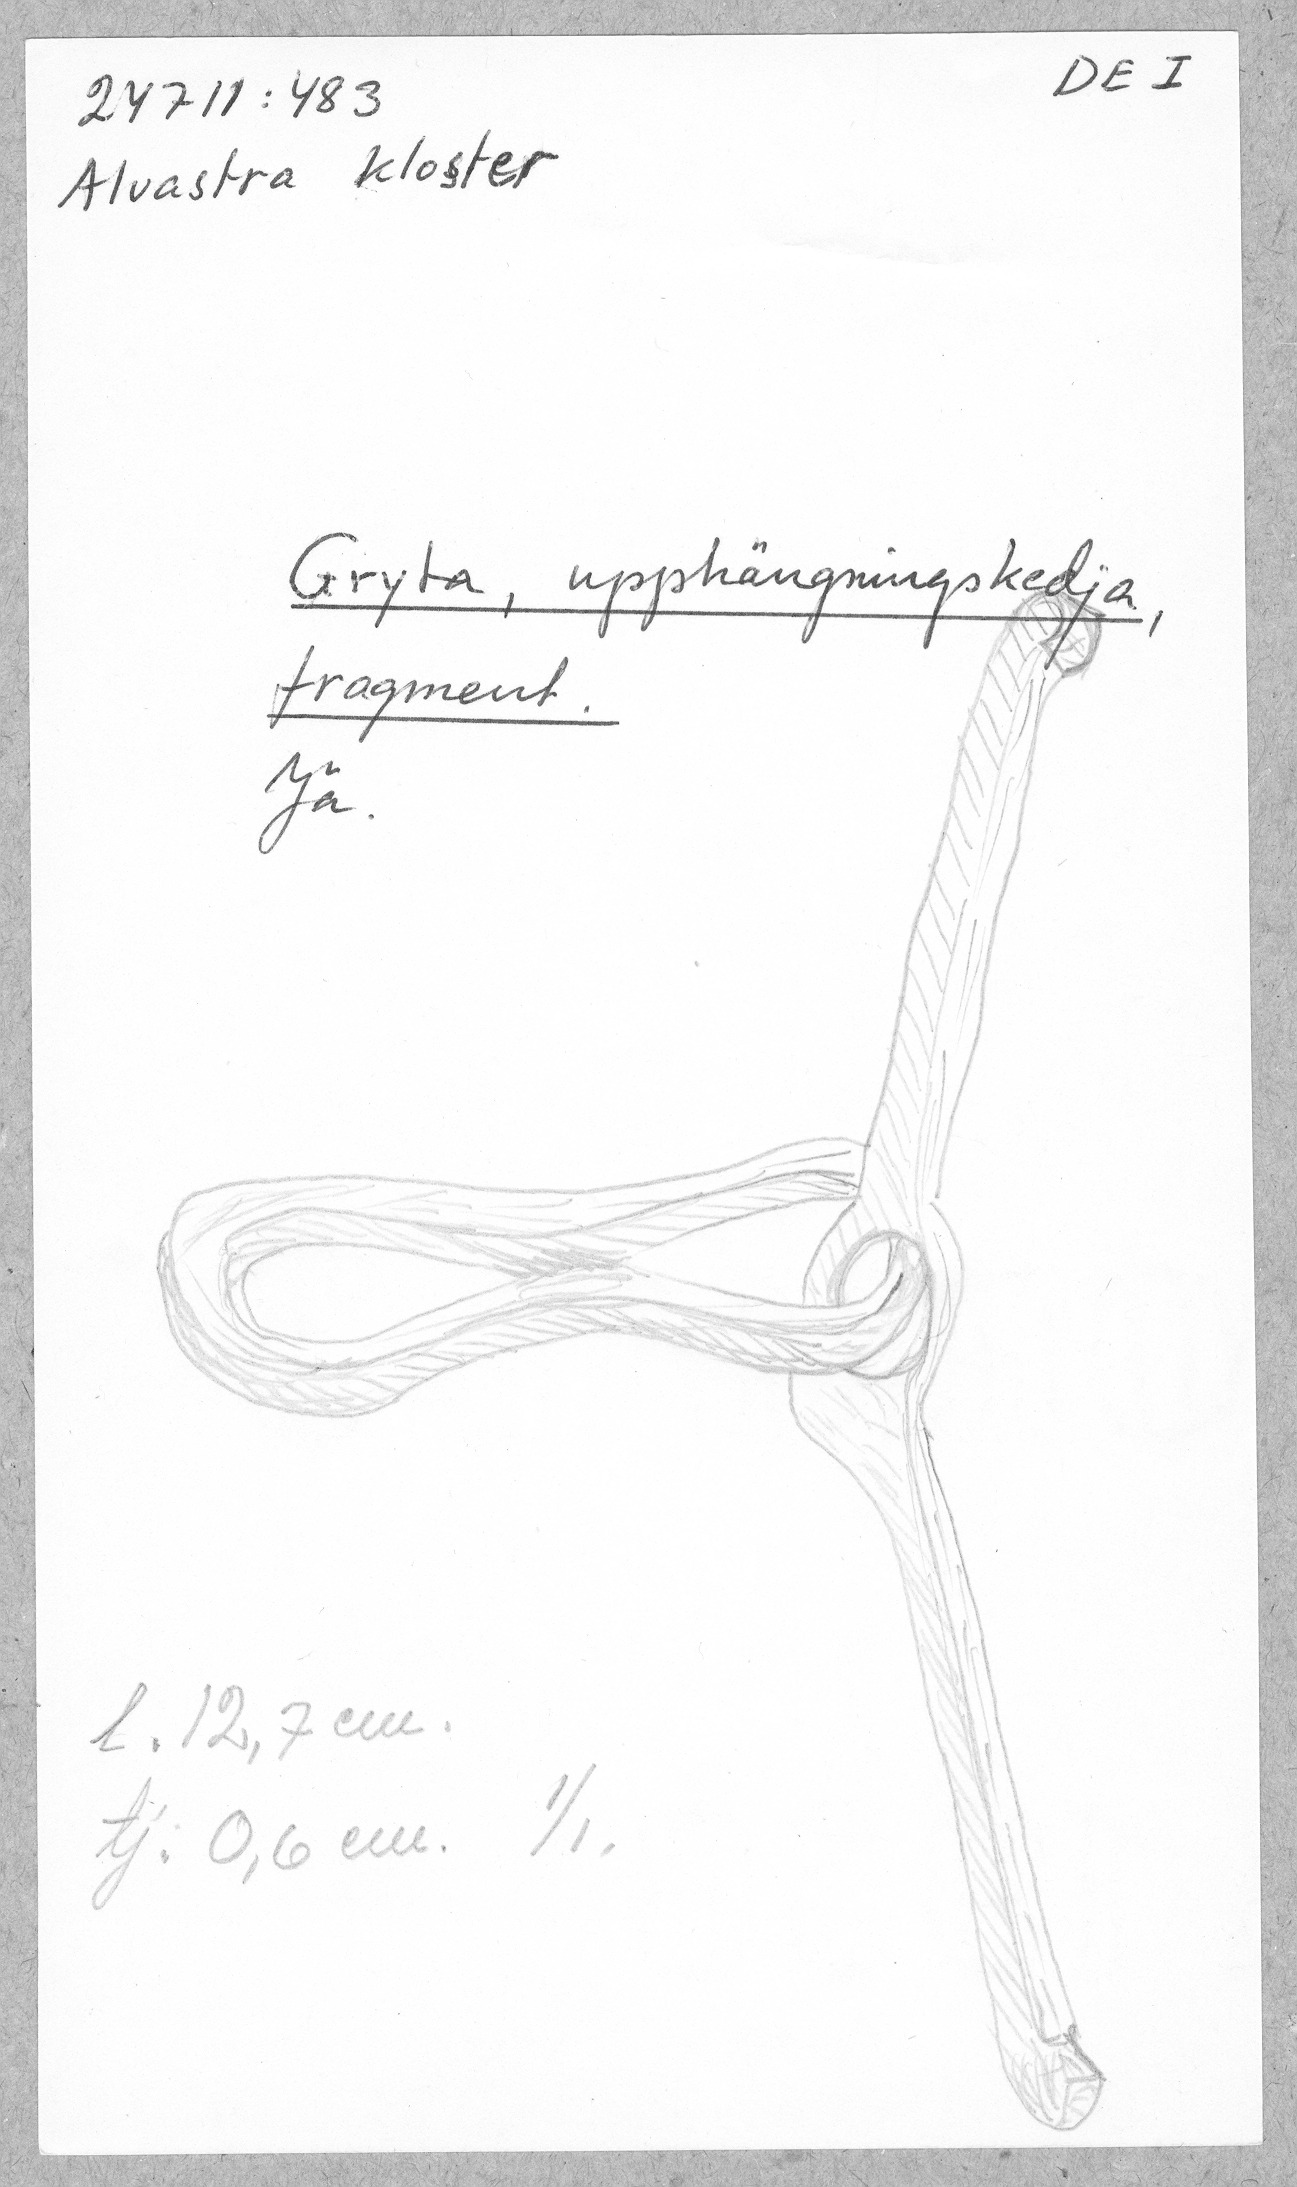 24711:483
DE I
Alvastra kloster
Gryta, upphängningskedja,
fragment.
Jä.
l. 12,7 cm.
tj: 0,6 cm. 1/1.